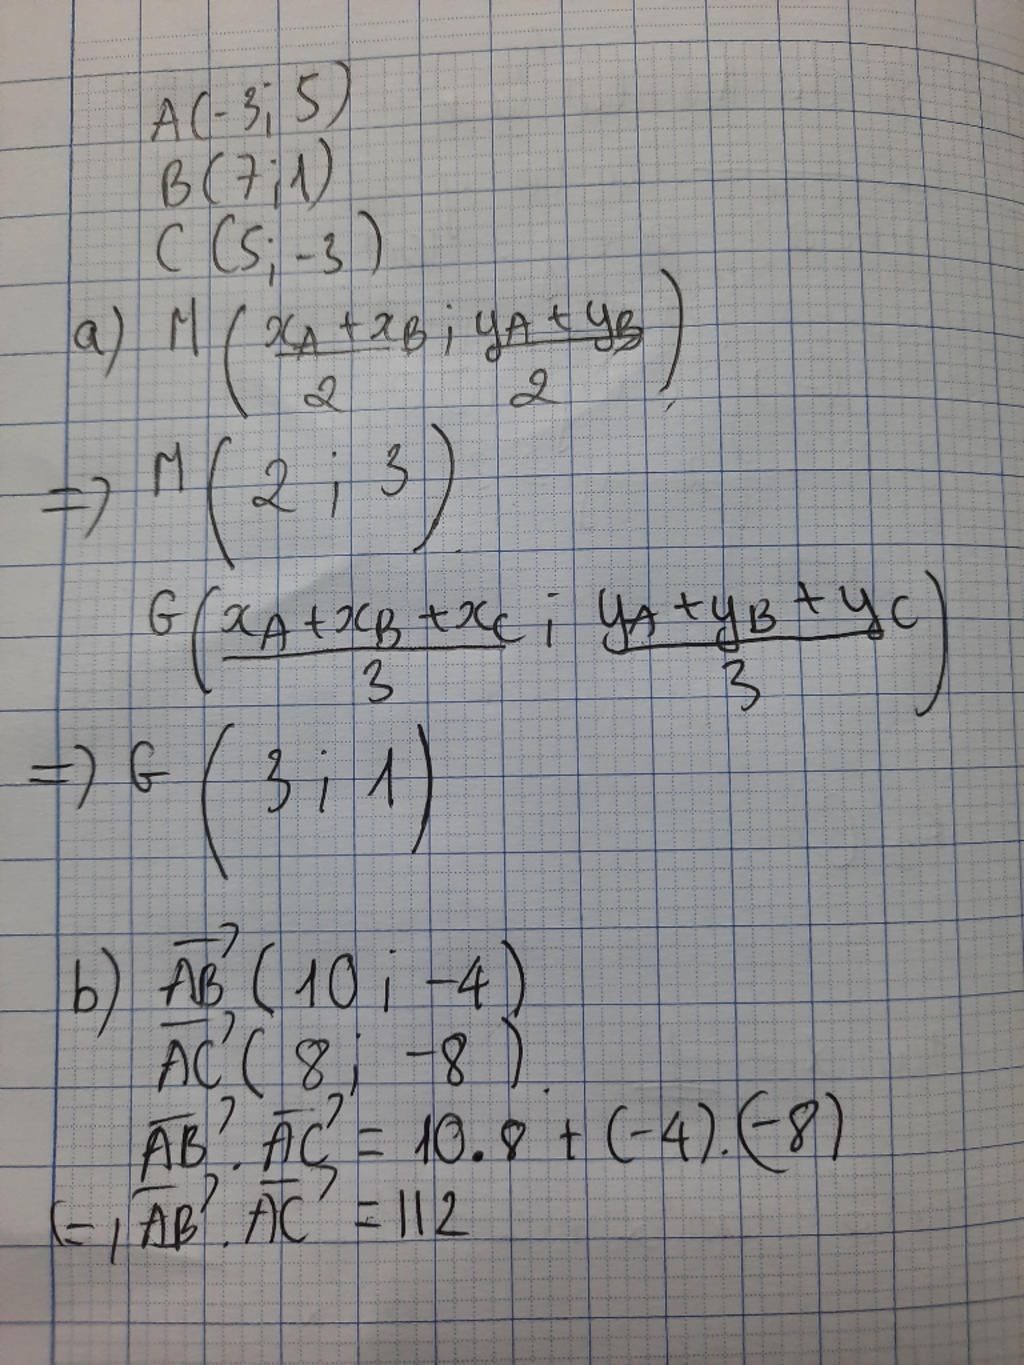 A(-3; 5)
B(7;1)
C (5; -3)
a) M ( (x_A + x_B)/2 ; (y_A + y_B)/2 )
=> M ( 2 ; 3 )
G ( (x_A + x_B + x_C)/3 ; (y_A + y_B + y_C)/3 )
=> G ( 3 ; 1 )
b) \overrightarrow{AB} ( 10 ; -4 )
\overrightarrow{AC} ( 8 ; -8 )
\overrightarrow{AB} . \overrightarrow{AC} = 10.8 + (-4).(-8)
(=) \overrightarrow{AB} . \overrightarrow{AC} = 112